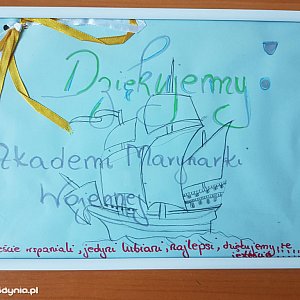 Dziękujemy
Akademi Marynarki
Wojennej
wspaniali, jedyni lubiani, najlepsi, dziękujemy, że
jesteście
dynia.pl